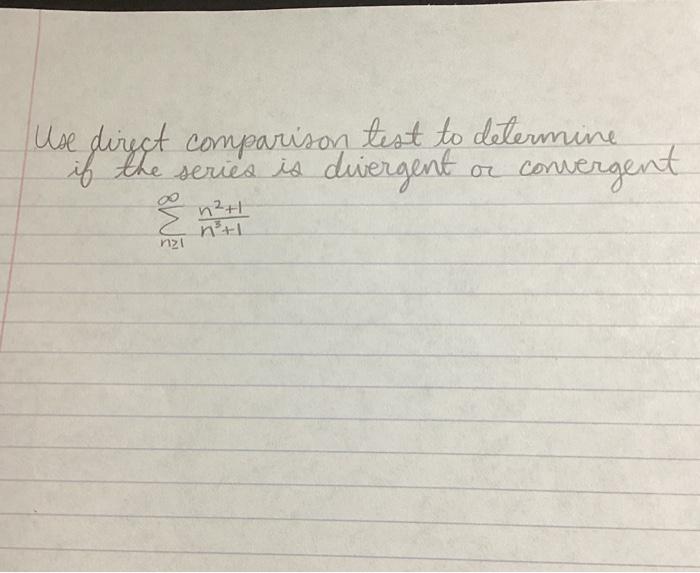 Use direct comparison test to determine
if the series is divergent or convergent
∞
∑ n²+1 / n³+1
n≥1